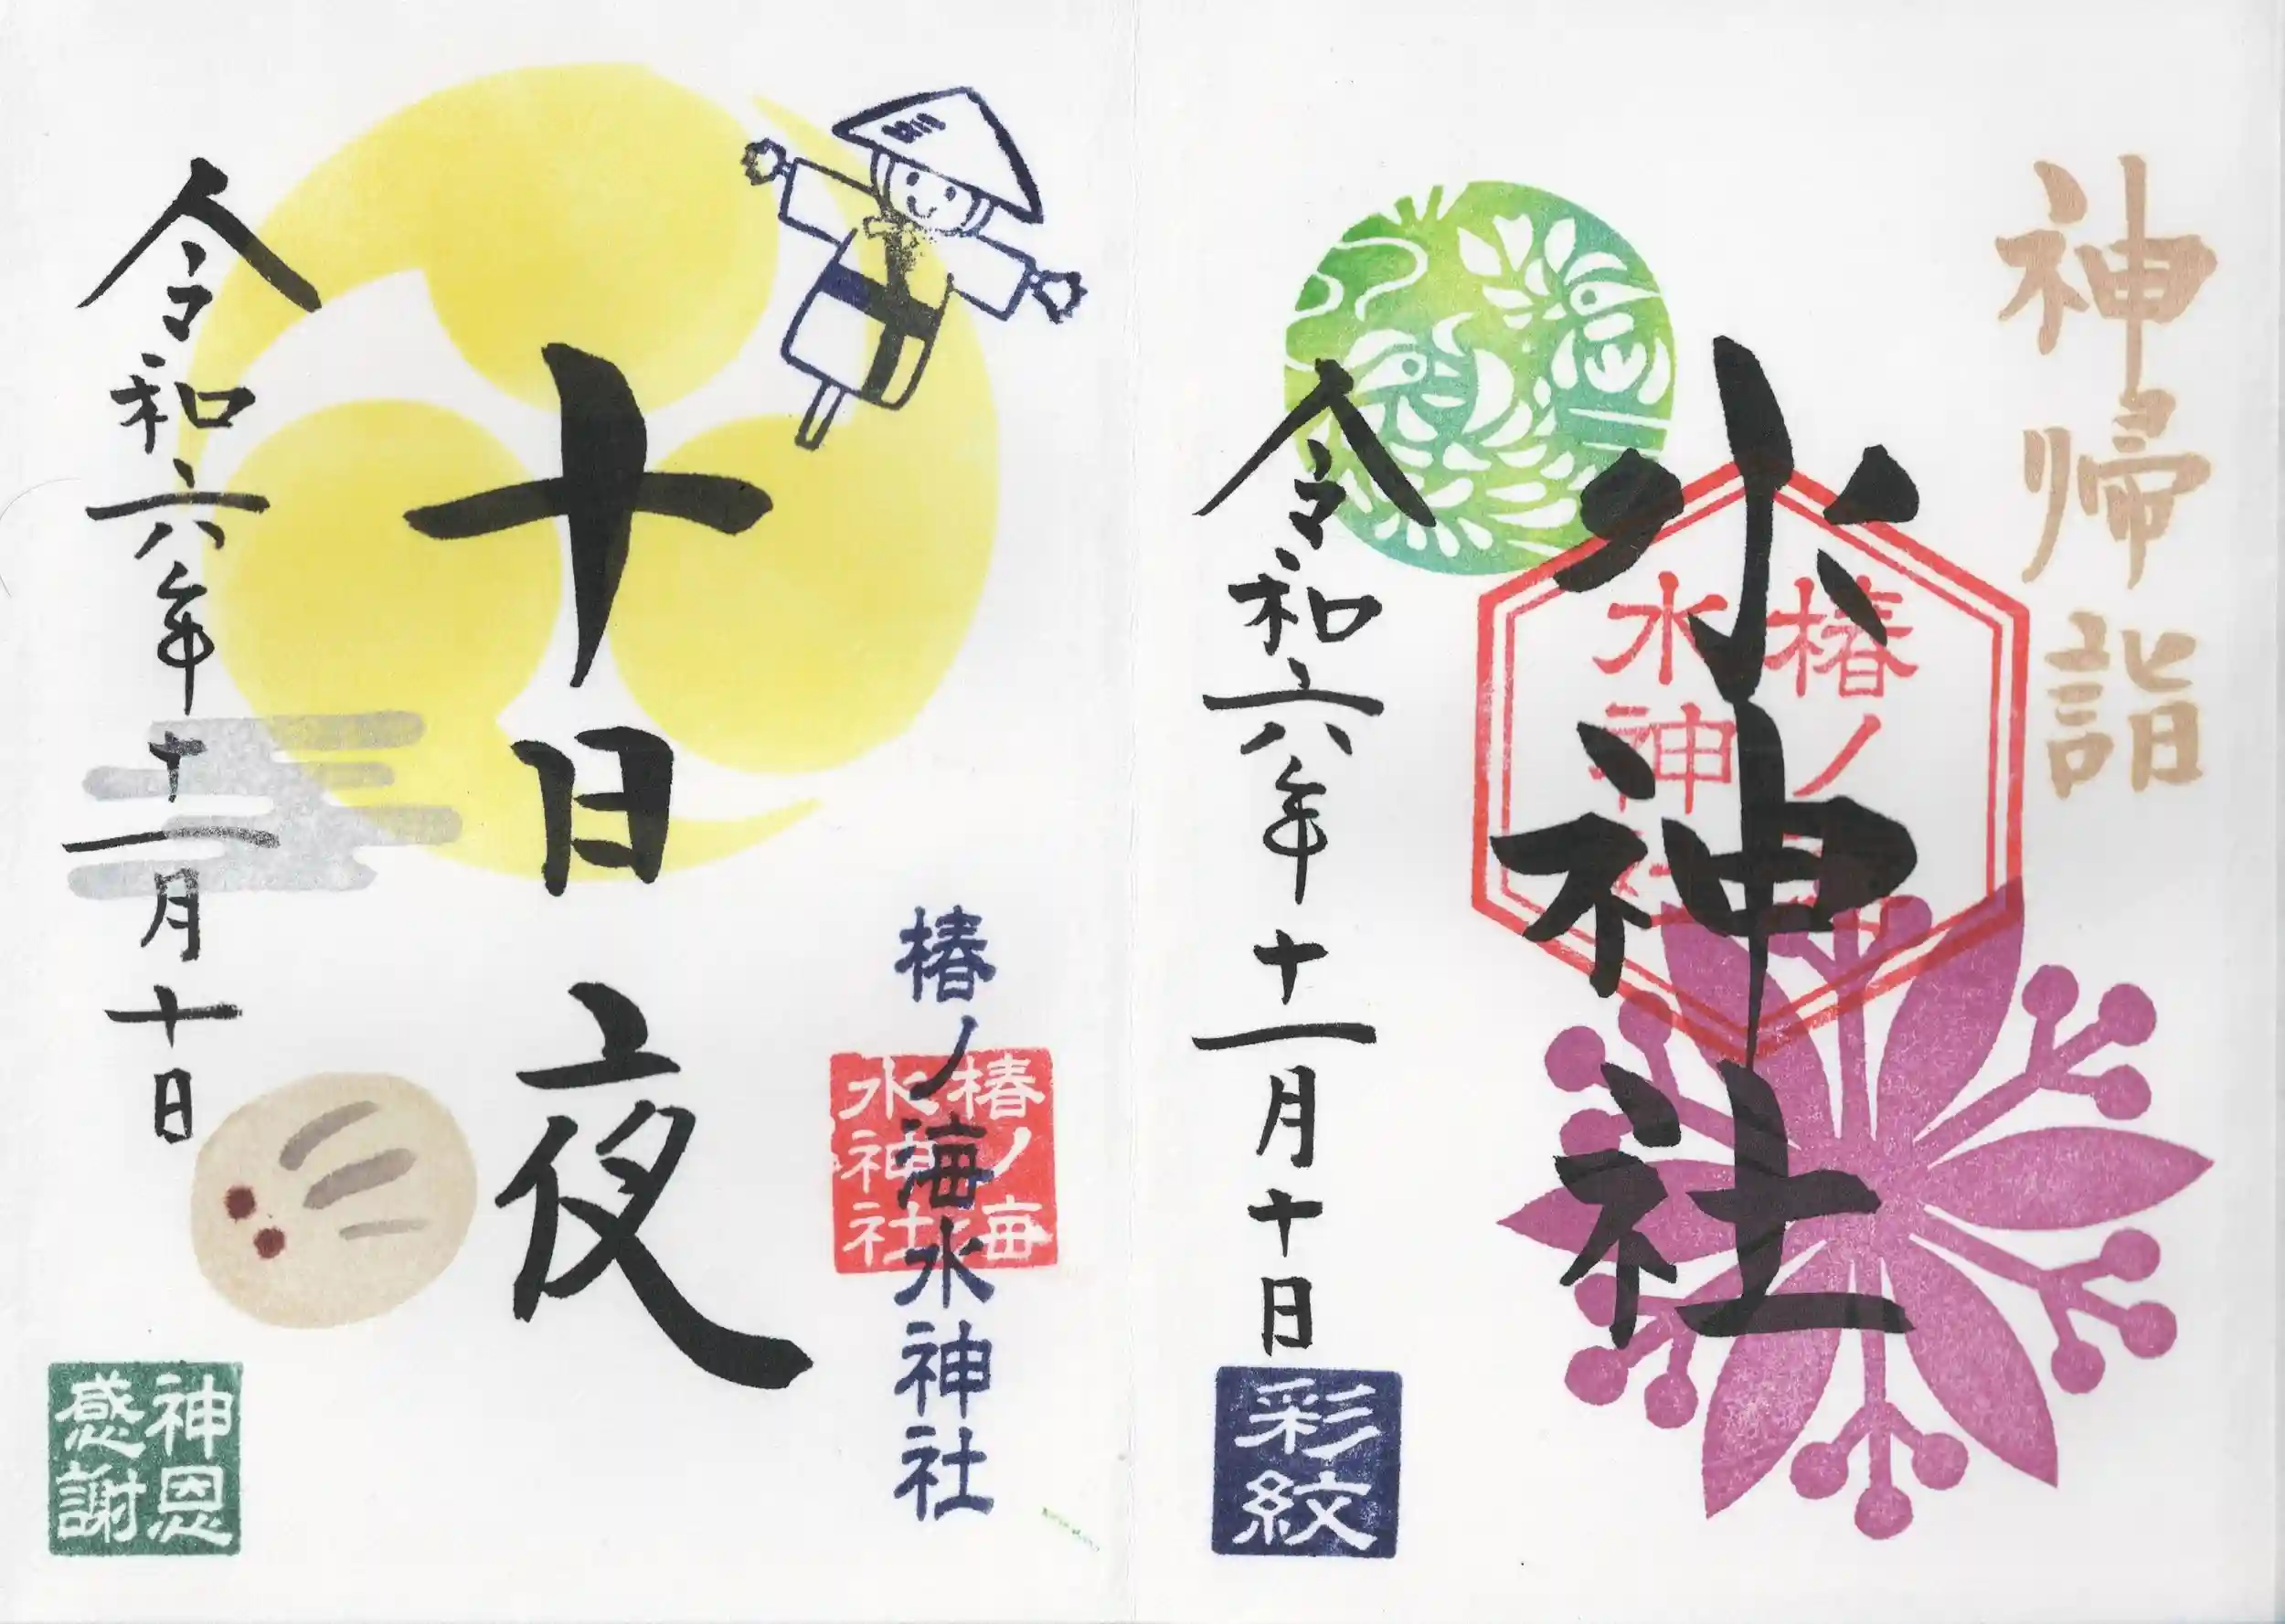 神帰詣
水神社
椿ノ
水神
令和六年十一月十日
彩紋
十日夜
椿ノ海水神社
椿ノ海
水神社
令和六年十一月十日
神恩
感謝